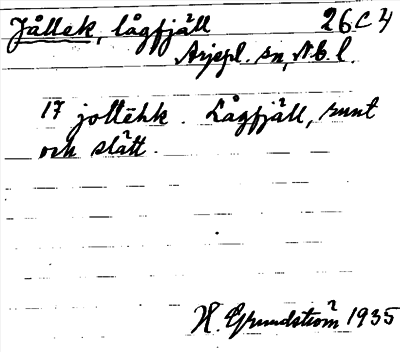 Jållek, lågfjäll 26 C 4
Arjepl. sn, Nb. l.
17 jollēhk. Lågfjäll, runt
och slätt.
H. Grundström 1935